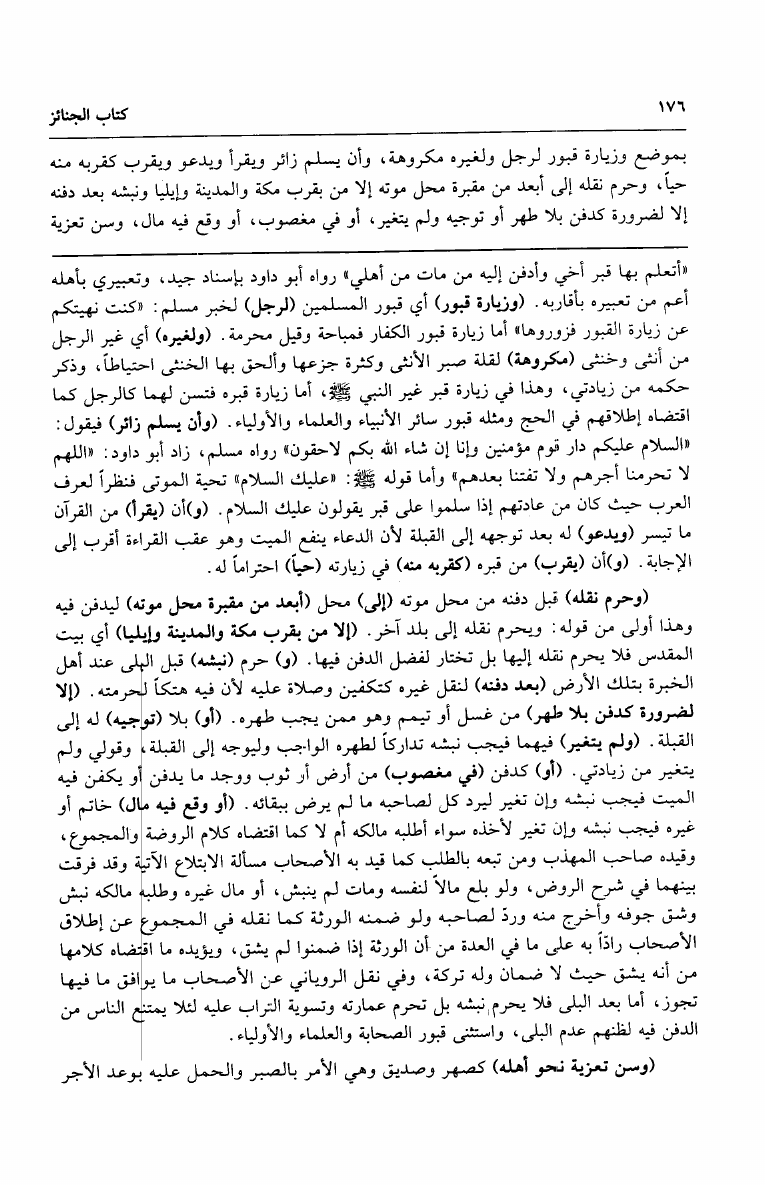 ١٧٦
كتاب الجنائز
بموضع وزيارة قبور لرجل ولغيره مكروهة، وأن يسلم زائر ويقرأ ويدعو ويقرب كقربه منه
حياً، وحرم نقله إلى أبعد من مقبرة محل موته إلا من بقرب مكة والمدينة وإيليا ونبشه بعد دفنه
إلا لضرورة كدفن بلا طهر أو توجيه ولم يتغير، أو في مغصوب، أو وقع فيه مال، وسن تعزية
«أتعلم بها قبر أخي وأدفن إليه من مات من أهلي» رواه أبو داود بإسناد جيد، وتعبيري بأهله
أعم من تعبيره بأقاربه. (وزيارة قبور) أي قبور المسلمين (لرجل) لخبر مسلم: «كنت نهيتكم
عن زيارة القبور فزوروها» أما زيارة قبور الكفار فمباحة وقيل محرمة. (ولغيره) أي غير الرجل
من أنثى وخنثى (مكروهة) لقلة صبر الأنثى وكثرة جزعها وألحق بها الخنثى احتياطاً، وذكر
حكمه من زيادتي، وهذا في زيارة قبر غير النبي ﷺ، أما زيارة قبره فتسن لهما كالرجل كما
اقتضاه إطلاقهم في الحج ومثله قبور سائر الأنبياء والعلماء والأولياء. (وأن يسلم زائر) فيقول:
«السلام عليكم دار قوم مؤمنين وإنا إن شاء الله بكم لاحقون» رواه مسلم، زاد أبو داود: «اللهم
لا تحرمنا أجرهم ولا تفتنا بعدهم» وأما قوله ﷺ: «عليك السلام» تحية الموتى فنظراً لعرف
العرب حيث كان من عادتهم إذا سلموا على قبر يقولون عليك السلام. (و)أن (يقرأ) من القرآن
ما تيسر (ويدعو) له بعد توجهه إلى القبلة لأن الدعاء ينفع الميت وهو عقب القراءة أقرب إلى
الإجابة. (و)أن (يقرب) من قبره (كقربه منه) في زيارته (حياً) احتراماً له.
(وحرم نقله) قبل دفنه من محل موته (إلى) محل (أبعد من مقبرة محل موته) ليدفن فيه
وهذا أولى من قوله: ويحرم نقله إلى بلد آخر. (إلا من بقرب مكة والمدينة وإيليا) أي بيت
المقدس فلا يحرم نقله إليها بل تختار لفضل الدفن فيها. (و) حرم (نبشه) قبل البلى عند أهل
الخبرة بتلك الأرض (بعد دفنه) لنقل غيره كتكفين وصلاة عليه لأن فيه هتكاً لحرمته. (إلا
لضرورة كدفن بلا طهر) من غسل أو تيمم وهو ممن يجب طهره. (أو) بلا (توجيه) له إلى
القبلة. (ولم يتغير) فيهما فيجب نبشه تداركاً لطهره الواجب وليوجه إلى القبلة، وقولي ولم
يتغير من زيادتي. (أو) كدفن (في مغصوب) من أرض أر ثوب ووجد ما يدفن أو يكفن فيه
الميت فيجب نبشه وإن تغير ليرد كل لصاحبه ما لم يرض ببقائه. (أو وقع فيه مال) خاتم أو
غيره فيجب نبشه وإن تغير لأخذه سواء أطلبه مالكه أم لا كما اقتضاه كلام الروضة والمجموع،
وقيده صاحب المهذب ومن تبعه بالطلب كما قيد به الأصحاب مسألة الابتلاع الآتية وقد فرقت
بينهما في شرح الروض، ولو بلع مالاً لنفسه ومات لم ينبش، أو مال غيره وطلبه مالكه نبش
وشق جوفه وأخرج منه وردّ لصاحبه ولو ضمنه الورثة كما نقله في المجموع عن إطلاق
الأصحاب رادّاً به على ما في العدة من أن الورثة إذا ضمنوا لم يشق، ويؤيده ما اقتضاه كلامها
من أنه يشق حيث لا ضمان وله تركة، وفي نقل الروياني عن الأصحاب ما يوافق ما فيها
تجوز، أما بعد البلى فلا يحرم نبشه بل تحرم عمارته وتسوية التراب عليه لئلا يمتنع الناس من
الدفن فيه لظنهم عدم البلى، واستثنى قبور الصحابة والعلماء والأولياء.
(وسن تعزية نحو أهله) كصهر وصديق وهي الأمر بالصبر والحمل عليه بوعد الأجر